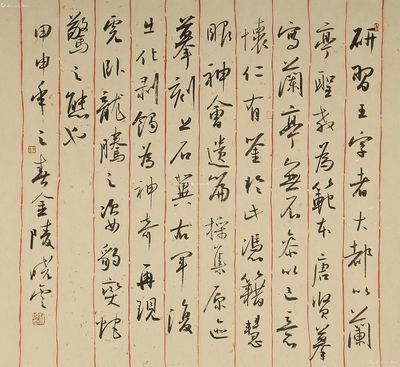 研習王字者大都以蘭
亭聖教為範本唐賢摹
寫蘭亭無不參以己意
懷仁有鑒於此憑藉慧
眼神會遺篇採集原迹
摹刻上石冀右軍復
出化剥蝕為神奇再現
虎卧龍騰之姿豹突蛇
驚之態也
甲申年之春金陵曉雲